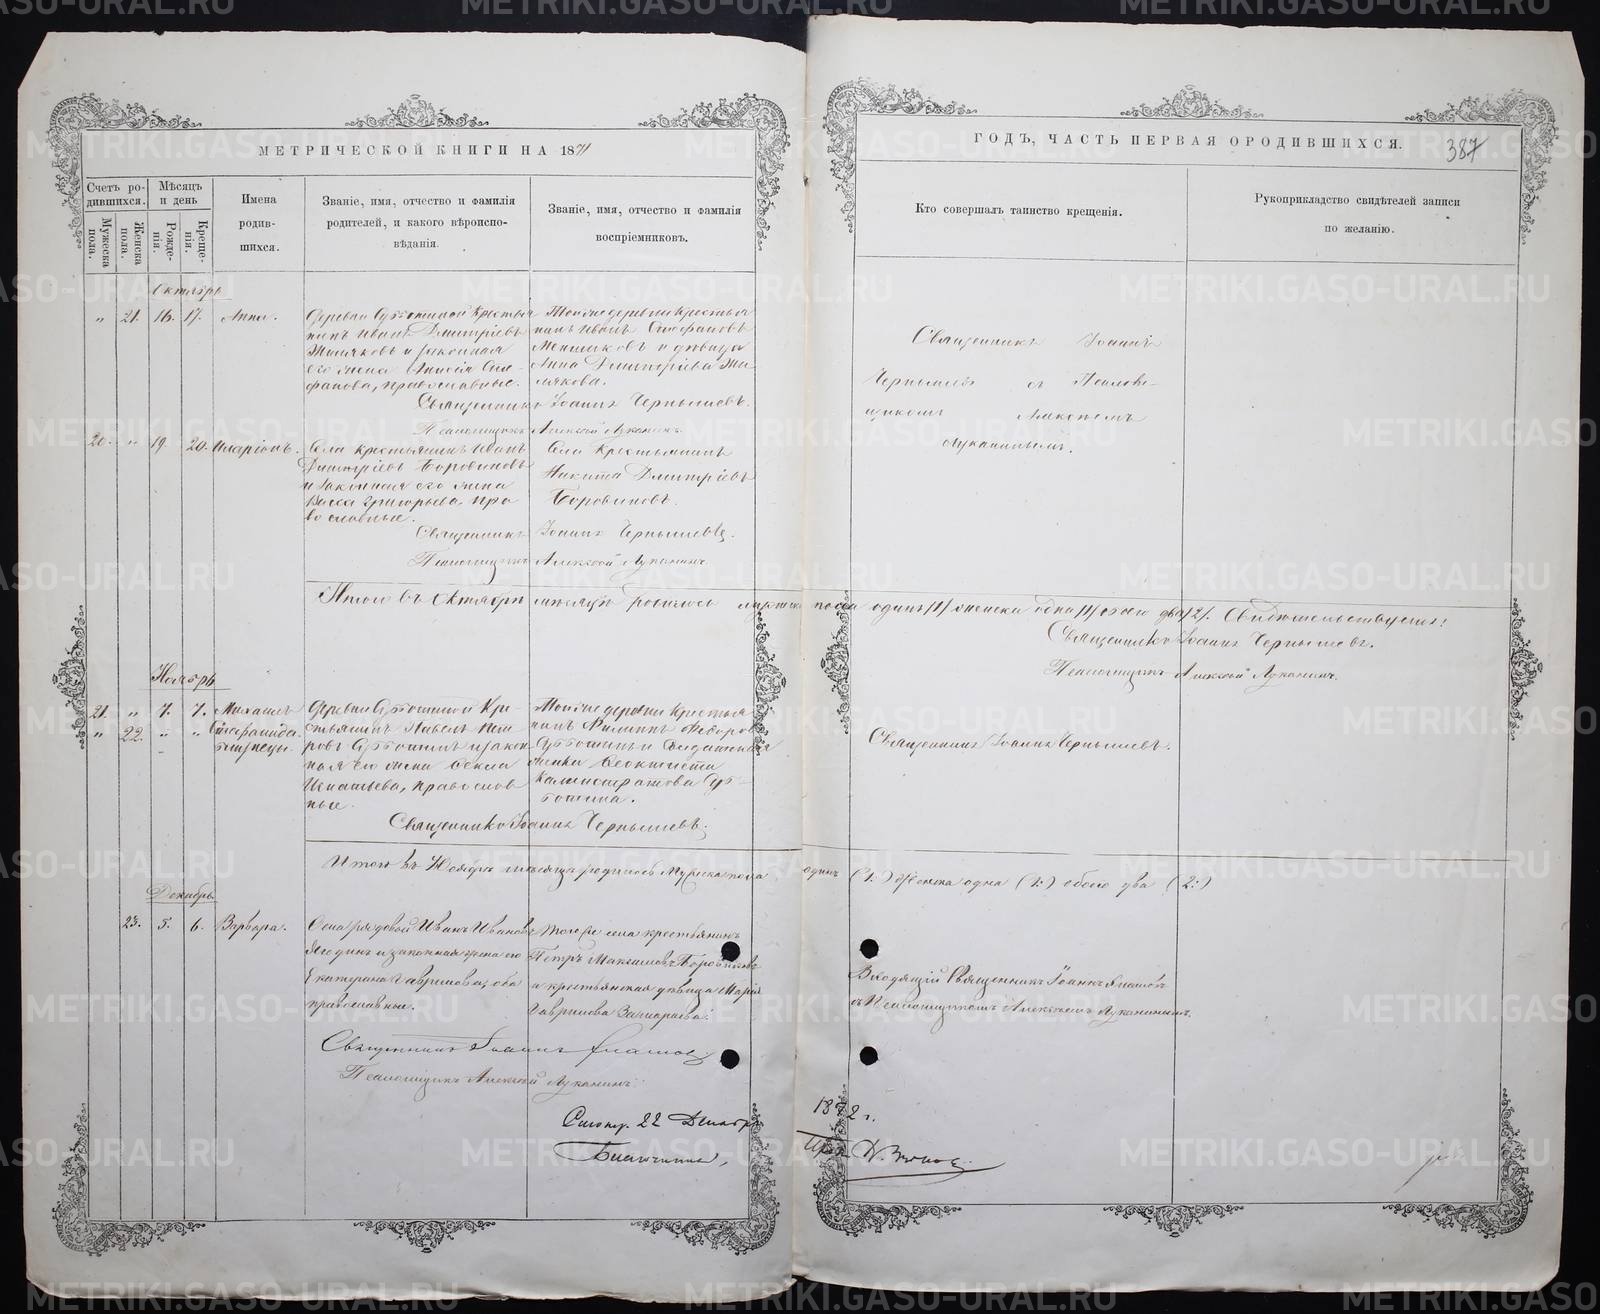 МЕТРИЧЕСКОЙ КНИГИ НА 1871
ГОДЪ, ЧАСТЬ ПЕРВАЯ О РОДИВШИХСЯ.
387
Счетъ ро-
дившихся.
Мужеска
пола.
Женска
пола.
Мѣсяцъ
и день
Рожде-
нія.
Креще-
нія.
Имена
родив-
шихся.
Званіе, имя, отчество и фамилія
родителей, и какого вѣроиспо-
вѣданія.
Званіе, имя, отчество и фамилія
воспріемниковъ.
Кто совершалъ таинство крещенія.
Рукоприкладство свидѣтелей записи
по желанію.
Октябрь
" 21. 16. 17. Анна.
Деревни Крестья
нинъ Иванъ Дмитріевъ
и законная
его жена Сте-
фанова, православные.
Тойже деревни Крестья
нинъ Иванъ Стефановъ
и дѣвица
Анна Дмитріева
Священникъ Іоаннъ
Чернышевъ съ Псалом-
щикомъ Алексѣемъ
Луканинымъ.
Священникъ Іоаннъ Чернышевъ.
Псаломщикъ Алексѣй Луканинъ.
20. " 19. 20. Иларіонъ.
Села крестьянинъ Иванъ
Дмитріевъ Боровиковъ
и законная его жена
Васса Григорьева, пра
вославные.
Села Крестьянинъ
Никита Дмитріевъ
Боровиковъ.
Священникъ Іоаннъ Чернышевъ.
Псаломщикъ Алексѣй Луканинъ
Итого въ Октябрѣ мѣсяцѣ родилось мужеска пола одинъ /1/ женска одна /1/ обоего два /2/. Свидѣтельствуютъ:
Священникъ Іоаннъ Чернышевъ.
Псаломщикъ Алексѣй Луканинъ.
Ноябрь
21. " 7. 7. Михаилъ
" 22. " " Стефанида
близнецы.
Деревни Кре-
стьянинъ Павелъ Пет
ровъ Субботинъ и закон
ная его жена Фекла
Игнатьева, православ
ные.
Тойже деревни Крестья
нинъ Филиппъ Ѳедоровъ
Субботинъ и
Ѳеоктиста
Калистратова Суб-
ботина.
Священникъ Іоаннъ Чернышевъ.
Священникъ Іоаннъ Чернышевъ.
Итого въ Ноябрѣ мѣсяцѣ родилось Мужеска пола одинъ (1:) Женска одна (1:) обоего два (2:)
Декабрь
23. 5. 6. Варвара.
Села рядовой Иванъ Ивановъ
Ягодинъ и законная жена его
Екатерина Гаврилова, оба
православные.
Того же села крестьянинъ
Петръ Максимовъ Боровиковъ
и крестьянская дѣвица Марія
Гаврилова
Священникъ Іоаннъ
съ Псаломщикомъ Алексѣемъ Луканинымъ.
Священникъ Іоаннъ
Псаломщикъ Алексѣй Луканинъ.
22 Декабря
1872 г.
METRIKI.GASO-URAL.RU